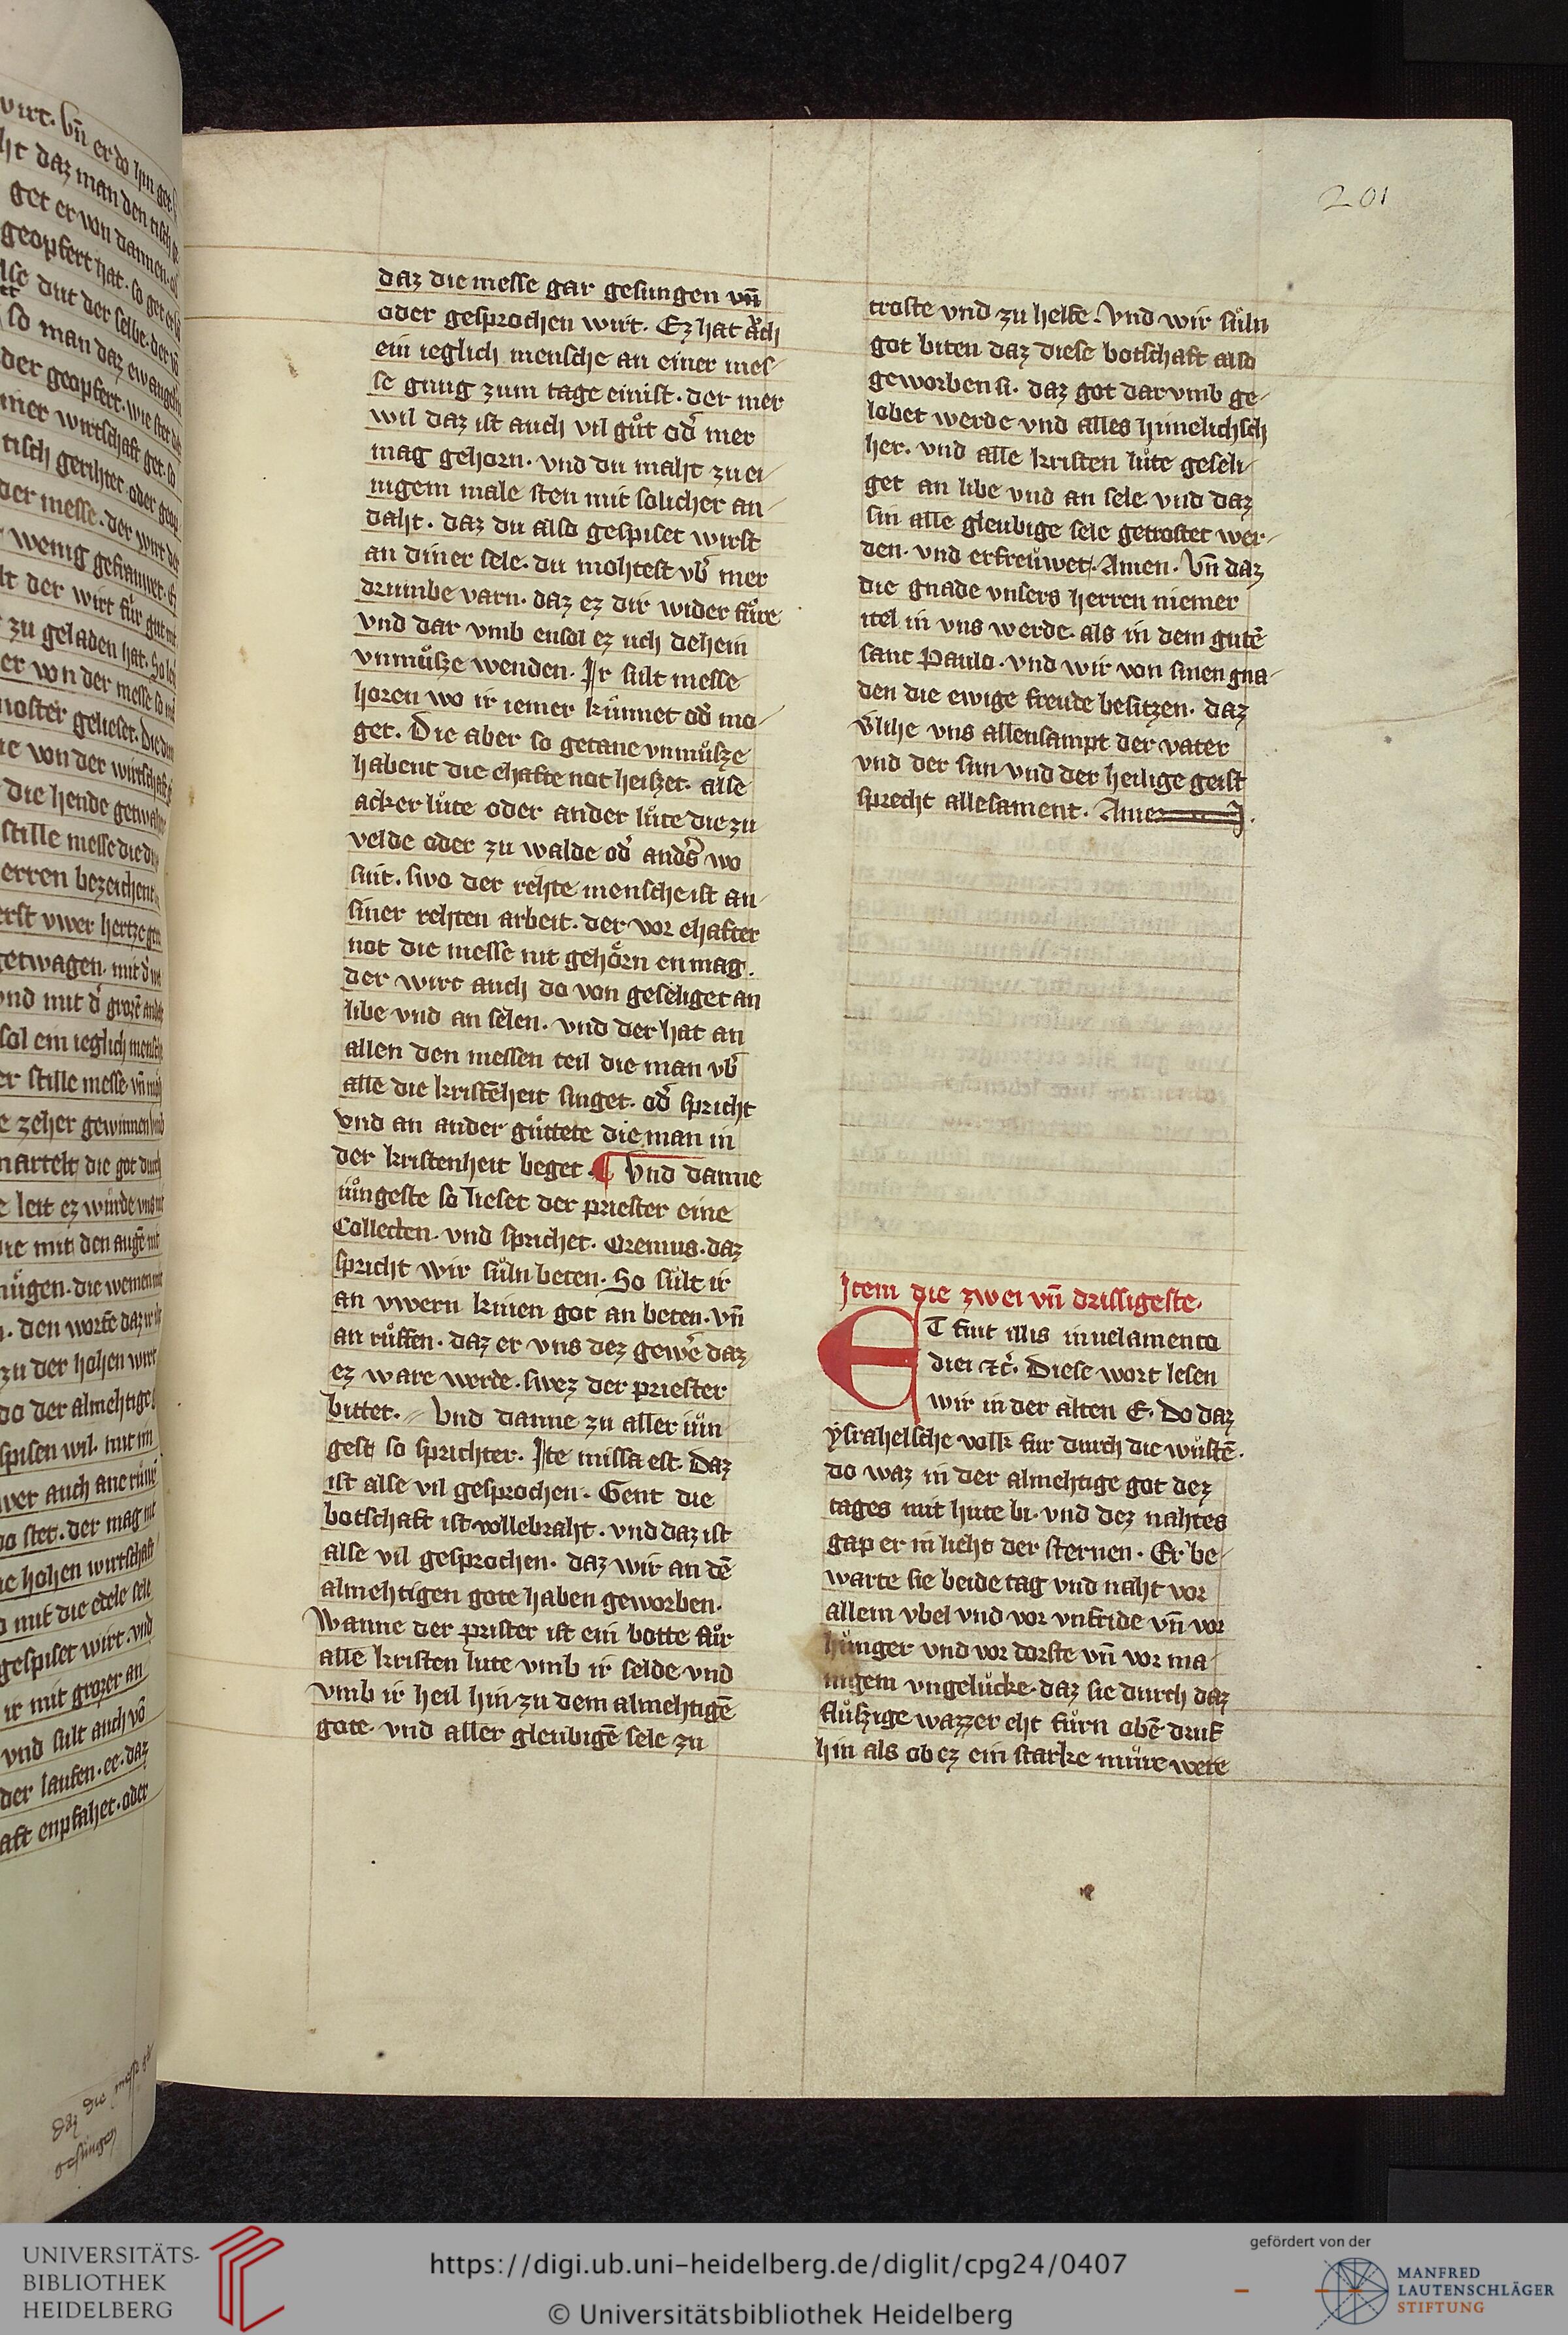 201
daz die messe gar gesungen vn̄
oder gesprochen wirt. Ez hat aͮch
ein ieglich mensche an einer mes-
se gnug zum tage einist. der mer
wil daz ist auch vil guͦt od͛ mer
mag gehorn. vnd du maht zu ei-
nigem male sten mit solicher an-
daht. daz du also gespiset wirst
an diner sele. du mohtest vb͛ mer
drumbe varn. daz ez dir wider fuͤre
vnd dar vmb ensol ez uch dehein
vnmuͦsze wenden. Ir sult messe
horen wo ir iemer kuͤnnet od͛ mo-
get. Die aber so getane vnmuͦsze
habent die ehafte not heiszet. alse
acker luͤte oder ander luͤte die zu
velde oder zu walde od͛ anders wo
sint. swo der rehte mensche ist an
siner rehten arbeit. der vor ehafter
not die messe nit gehoͤrn en mag.
der wirt auch do von geseliget an
libe vnd an selen. vnd der hat an
allen den messen teil die man vb͛
alle die kristēheit singet. od͛ spricht
vnd an ander guͤttete die man in
der kristenheit beget. ¶ Vnd danne
iuͤngeste so lieset der priester eine
Collecten. vnd sprichet. Oremus. daz
spricht wir suͤln beten. So suͤlt ir
an vwern knien got an beten. vn̄
an ruͦffen. daz er vns dez gewē daz
ez ware werde. swez der priester
bittet. Vnd danne zu aller iuͤn
gest so sprichter. Ite missa est. Daz
ist alse vil gesprochen. Gent die
botschaft ist vollebraht. vnd daz ist
alse vil gesprochen. daz wir an dē
almehtigen gote haben geworben.
Wanne der prister ist ein botte fuͤr
alle kristen lute vmb ir selde vnd
vmb ir heil hin zu dem almehtigē
gote. vnd aller gleubigē sele zu
troste vnd zu helfe. Vnd wir suͤln
got biten daz diese botschaft also
geworben si. daz got dar vmb ge-
lobet werde vnd alles himelichsch
her. vnd alle kristen luͤte geseli-
get an libe vnd an sele vnd daz
sin alle gleubige sele getrostet wer-
den. vnd erfreuͤwet. Amen. Vn̄ daz
die gnade vnsers herren niemer
itel in vns werde. als in dem gutē
sant Paulo. vnd wir von sinen gna-
den die ewige freude besitzen. daz
v͛lihe vns allensampt der vater
vnd der sun vnd der heilige geist
sprecht allesament. Amen.
Item die zwei vn̄ drissigeste.
ET fuit illis in uelamento
diei ꝛc͛. Diese wort lesen
wir in der alten E. Do daz
ysrahelsche volk fur durch die wuͤstē.
do waz in der almehtige got dez
tages mit hute bi. vnd dez nahtes
gap er in lieht der sternen. Er be-
warte sie beide tag vnd naht vor
allem vbel vnd vor vnfride vn̄ vor
huͤnger vnd vor dorste vn̄ vor ma-
nigem vngeluͤcke. daz sie durch daz
fluͦszige wazzer eht fuͤrn obē druf
hin als ob ez ein starke muͤre were
UNIVERSITÄTS-
BIBLIOTHEK
HEIDELBERG
https://digi.ub.uni-heidelberg.de/diglit/cpg24/0407
© Universitätsbibliothek Heidelberg
gefördert von der
MANFRED
LAUTENSCHLÄGER
STIFTUNG